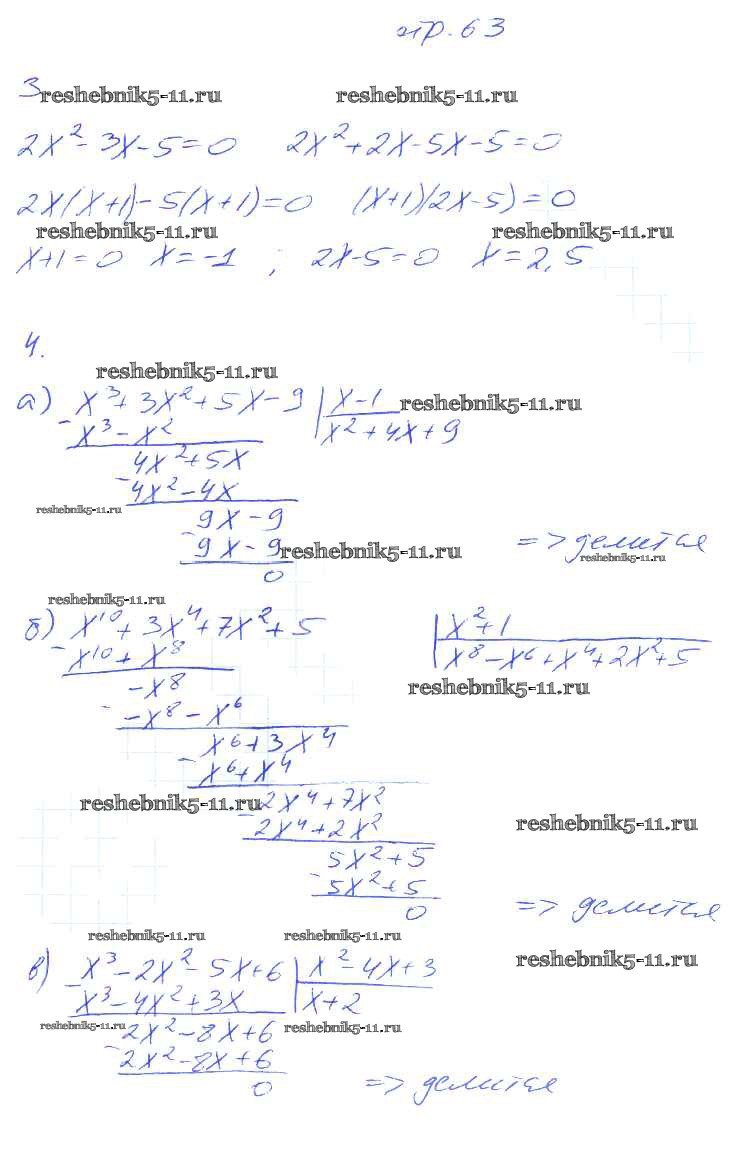 стр. 63
3
reshebnik5-11.ru reshebnik5-11.ru
2x² - 3x - 5 = 0 2x² + 2x - 5x - 5 = 0
2x(x+1) - 5(x+1) = 0 (x+1)(2x-5) = 0
reshebnik5-11.ru reshebnik5-11.ru
x+1 = 0 x = -1 ; 2x-5 = 0 x = 2,5
4.
reshebnik5-11.ru
а) x³ + 3x² + 5x - 9 | x - 1 reshebnik5-11.ru
- x³ - x² x² + 4x + 9
4x² + 5x
- 4x² - 4x
reshebnik5-11.ru
9x - 9
- 9x - 9 reshebnik5-11.ru => делится
reshebnik5-11.ru
0
reshebnik5-11.ru
б) x¹⁰ + 3x⁴ + 7x² + 5 | x² + 1
- x¹⁰ + x⁸ x⁸ - x⁶ + x⁴ + 2x² + 5
-x⁸ reshebnik5-11.ru
- -x⁸ - x⁶
x⁶ + 3x⁴
- x⁶ + x⁴
reshebnik5-11.ru 2x⁴ + 7x²
- 2x⁴ + 2x² reshebnik5-11.ru
5x² + 5
- 5x² + 5
0 => делится
reshebnik5-11.ru reshebnik5-11.ru
в) x³ - 2x² - 5x + 6 | x² - 4x + 3 reshebnik5-11.ru
- x³ - 4x² + 3x x + 2
reshebnik5-11.ru 2x² - 8x + 6 reshebnik5-11.ru
- 2x² - 8x + 6
0 => делится